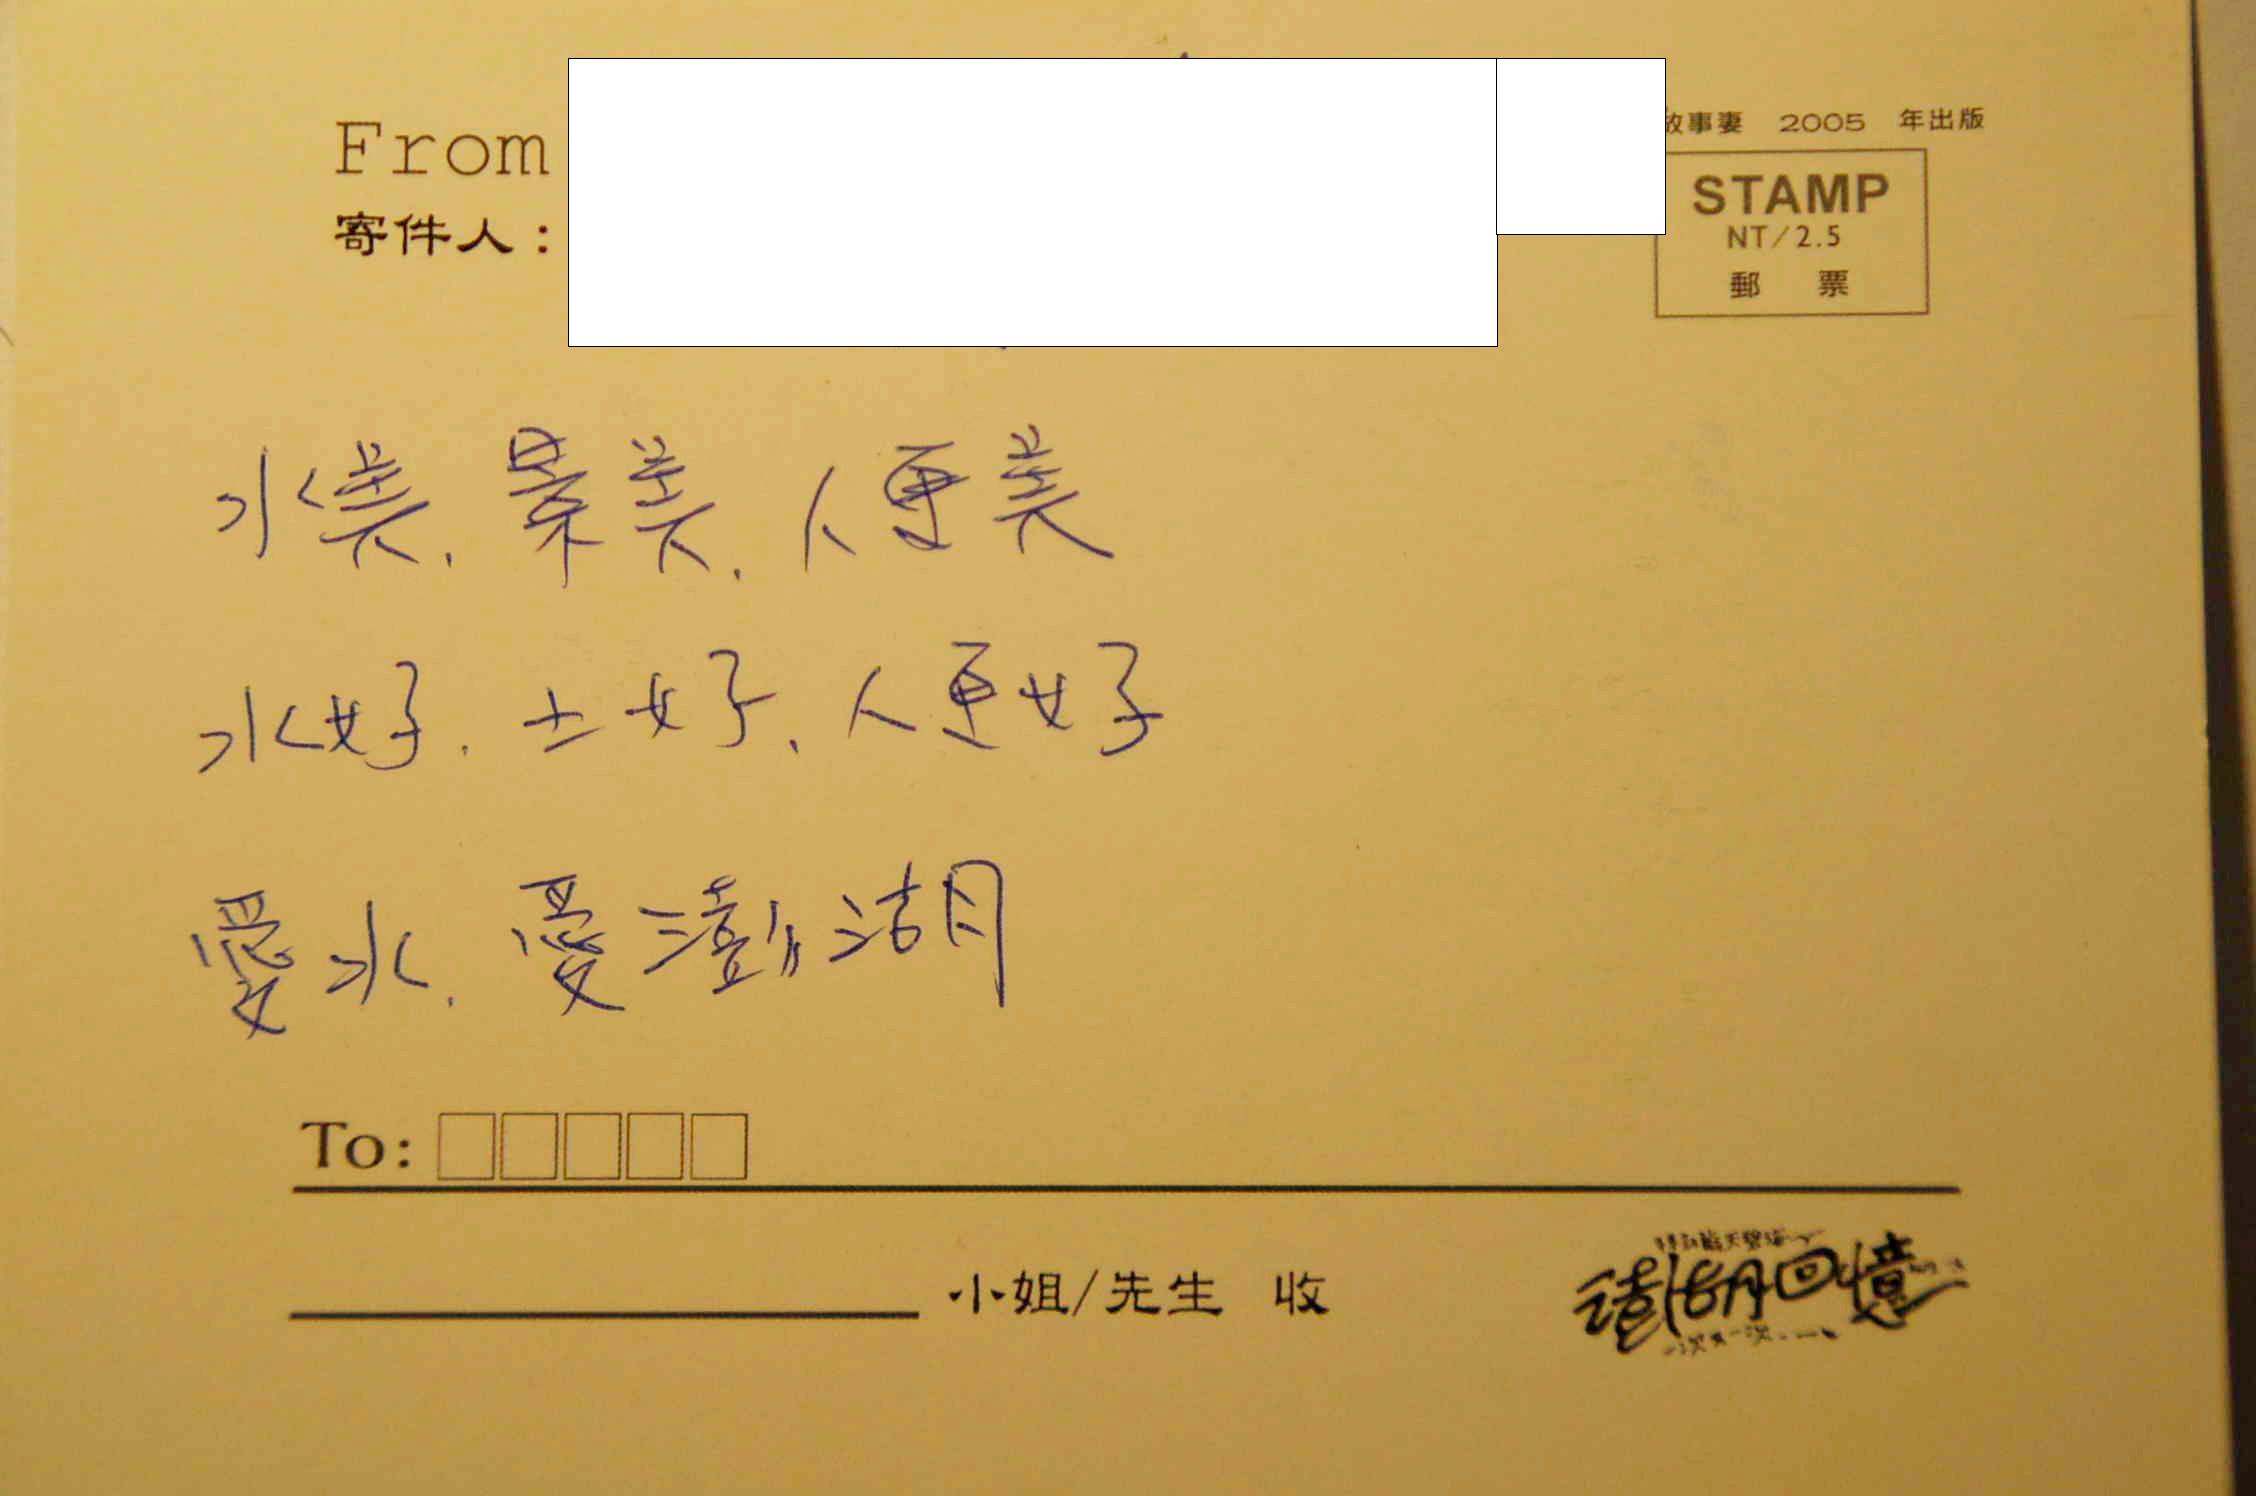 故事妻 2005 年出版
From
寄件人：
STAMP
NT/2.5
郵 票
水美，景美，人更美
水好，土好，人更好
愛水，愛澎湖
To:
小姐/先生 收
澎湖回憶